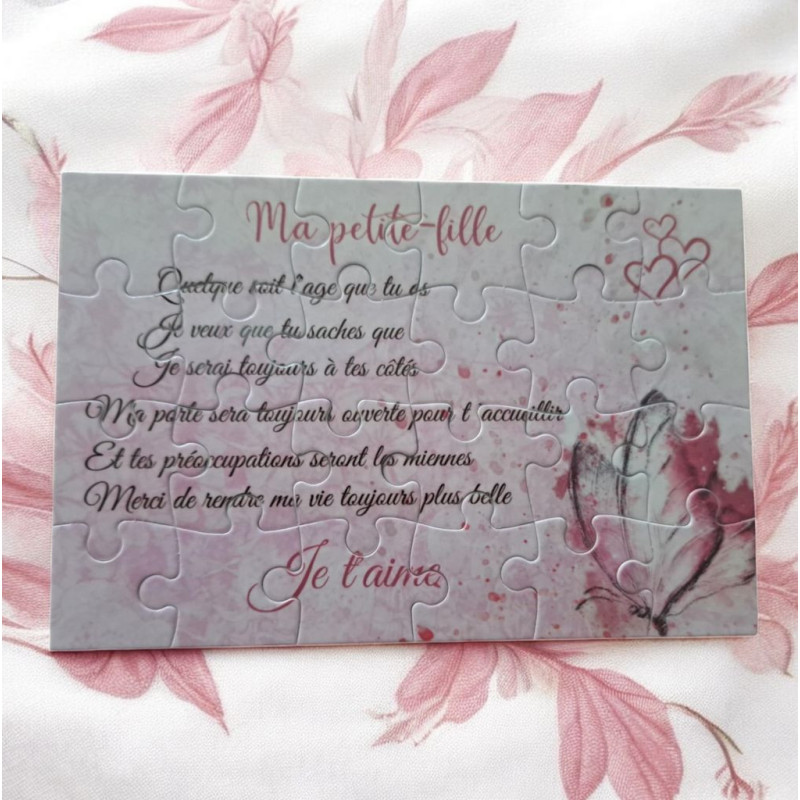 Ma petite-fille
Quelque soit l'age que tu es
Je veux que tu saches que
Je serai toujours à tes côtés
Ma porte sera toujours ouverte pour t'accueillir
Et tes préoccupations seront les miennes
Merci de rendre ma vie toujours plus belle
Je t'aime